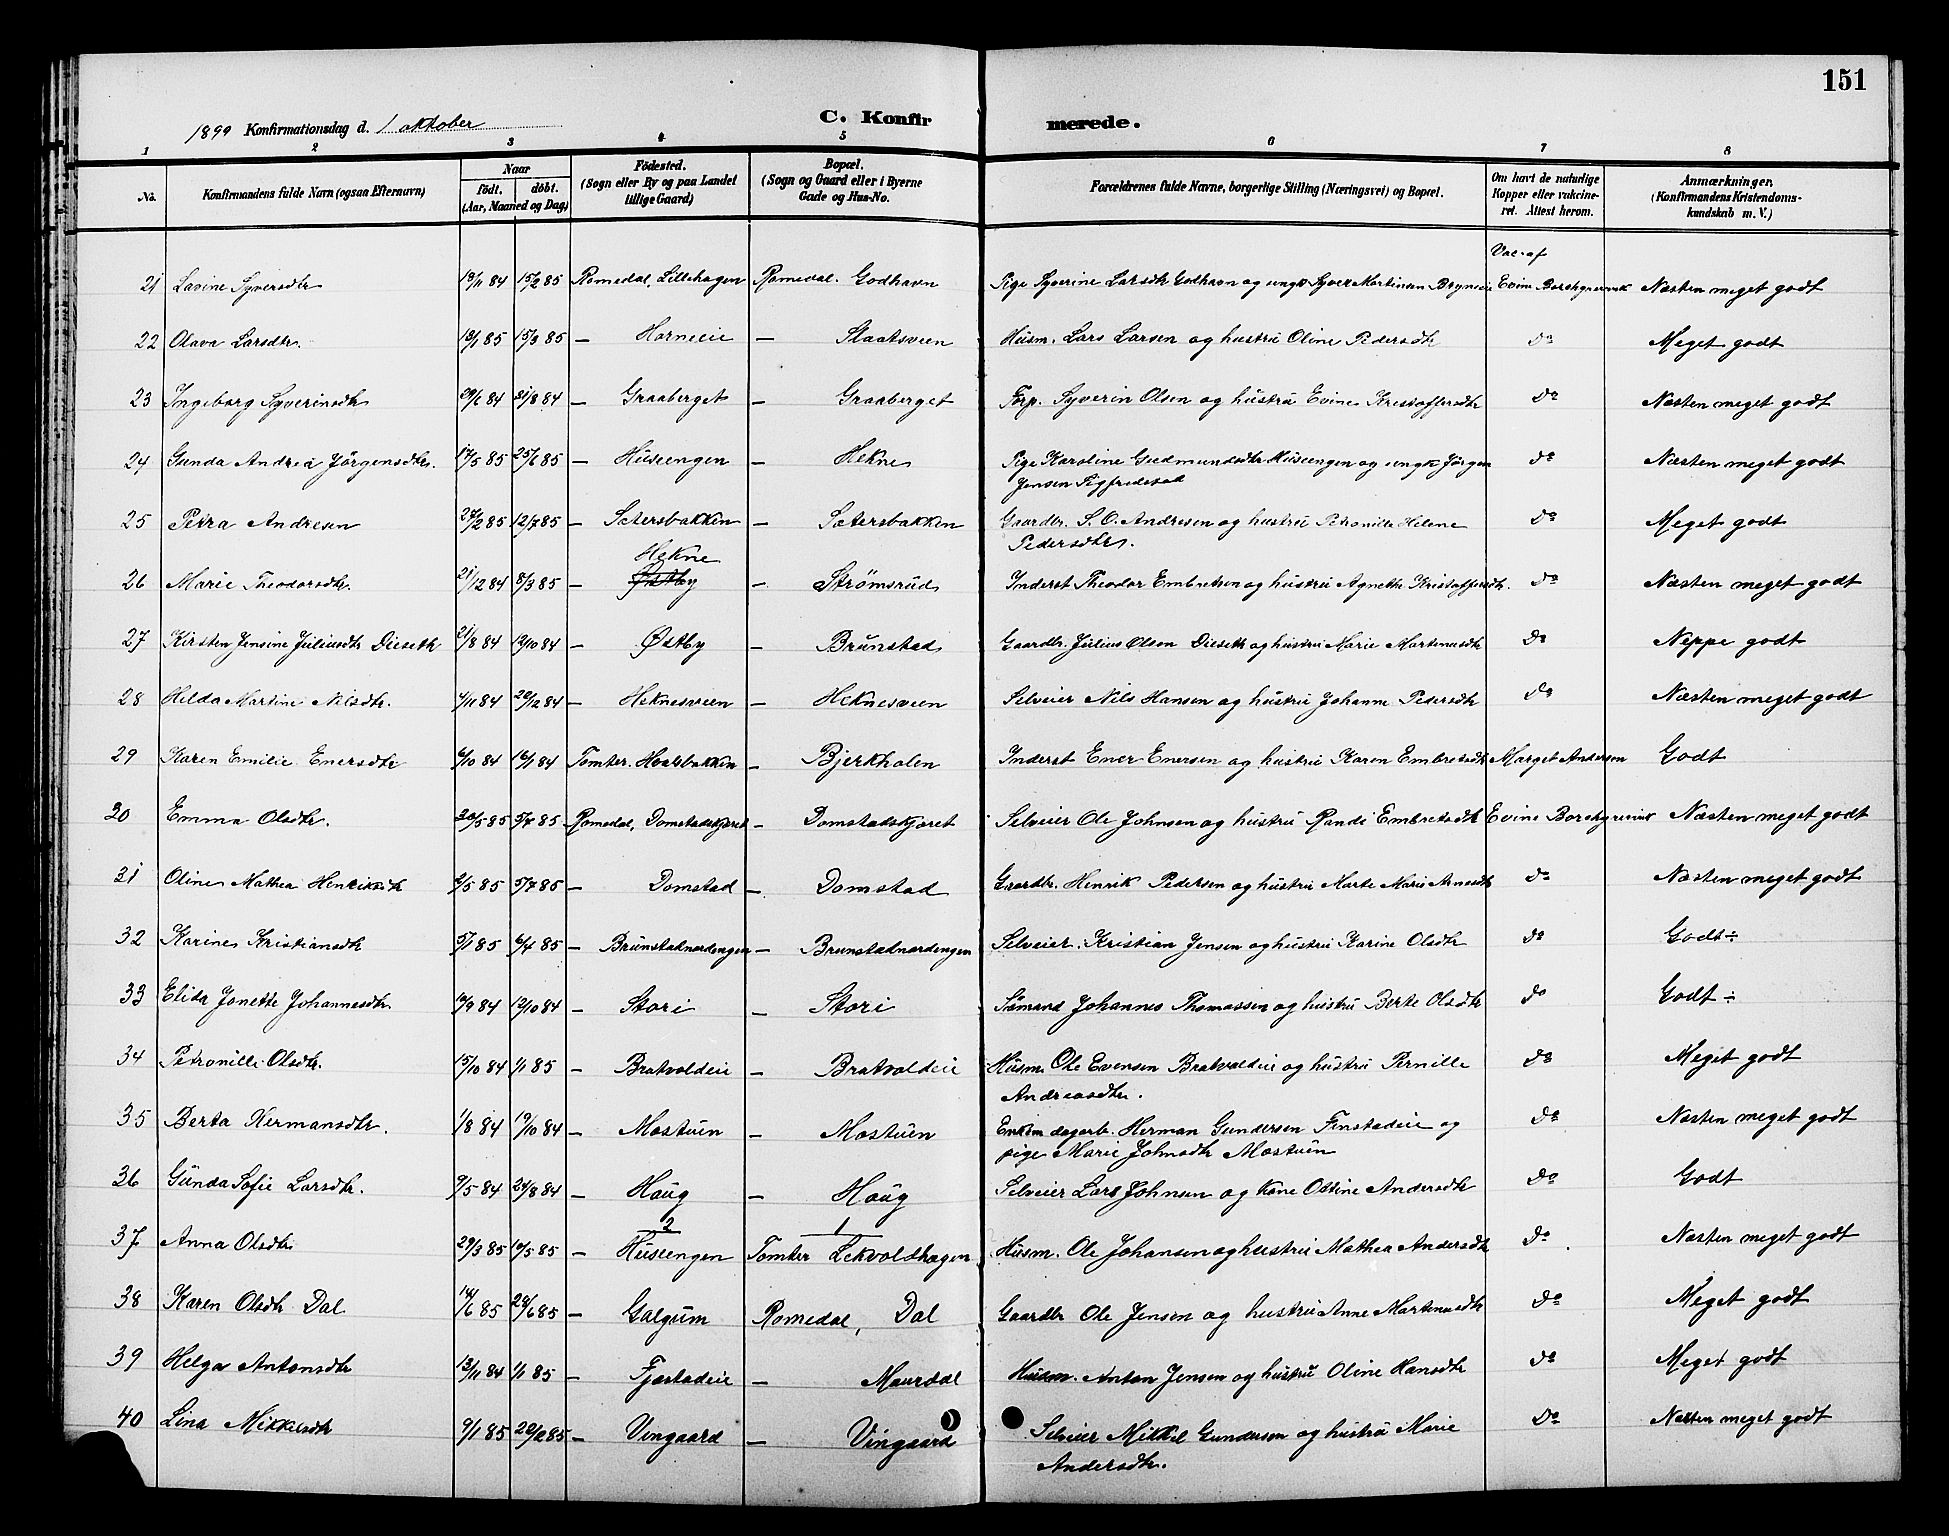 151
1899 Konfirmationsdag d. 1 oktober
C. Konfirmerede.
1 2 3 4 5 6 7 8
No. Konfirmandens fulde Navn (ogsaa Efternavn) Naar födt. döbt. (Aar, Maaned og Dag) Födested. (Sogn eller By og paa Landet tillige Gaard) Bopæl. (Sogn og Gaard eller i Byerne Gade og Hus-No. Forældrenes fulde Navne, borgerlige Stilling (Næringsvei) og Bopæl. Om havt de naturlige Kopper eller vakcineret. Attest herom. Anmærkninger. (Konfirmandens Kristendomskundskab m. V.)
Vac. af
21 Lavine Syversdtr 19/11 84 15/2 85 Romedal, Lillehagen Romedal. Godhavn Pige Syverine Larsdtr Godhavn og ungk Syver Martinsen Bryneeie Evine Borchgrevink Næsten meget godt
22 Olava Larsdtr. 10/1 85 15/3 85 — Horneeie — Staatsveen Husm. Lars Larsen og hustru Oline Pedersdtr do Meget godt
23 Ingeborg Syverinsdtr 29/6 84 31/8 84 — Graaberget — Graaberget Forp. Syverin Olsen og hustru Evine Kristoffersdtr do Næsten meget godt
24 Gunda Andrea Jörgensdtr. 17/5 85 25/6 85 — Huseengen — Hekne Pige Karoline Gudmundsdtr Huseengen og ungk Jörgen
Jensen Sigfredstad do Næsten meget godt
25 Petra Andresen 24/2 85 12/7 85 — Sætersbakken — Sætersbakken Gaardbr. S. O. Andresen og hustru Petronille Helene
Pedersdtr. do Meget godt
Hekne
26 Marie Theodorsdtr. 21/12 84 8/3 85 — Østby — Strømsrud Inderst Theodor Embretsen og hustru Agnethe Kristoffersdtr. do Næsten meget godt
27 Kirsten Jensine Juliusdtr Dieseth 21/8 84 12/10 84 — Østby — Brunstad Gaardbr. Julius Olsen Dieseth og hustru Marie Martinusdtr do Neppe godt
28 Helda Martine Nilsdtr. 4/11 84 20/12 84 — Heknesveen — Heknesveen Selveier Nils Hansen og hustru Johanne Pedersdtr do Næsten meget godt
29 Karen Emilie Enersdtr 6/10 84 16/1 84 Tomter. Hvarsbakken — Bjerkholen Inderst Ener Enersen og hustru Karen Embretsdtr Marget Andersen Godt
30 Emma Olsdtr. 20/5 85 5/7 85 Romedal, Domstadskjæret — Domstadskjæret Selveier Ole Johnsen og hustru Randi Embretsdtr Evine Borchgrevink Næsten meget godt
31 Oline Mathea Henriksdtr 2/5 85 5/7 85 — Domstad — Domstad Gaardbr. Henrik Pedersen og hustru Marte Marie Arnesdtr do Næsten meget godt
32 Karine Kristiansdtr 5/1 85 6/4 85 — Brunstadnordengen — Brunstadnordengen Selveier. Kristian Jensen og hustru Karine Olsdtr do Godt ÷
33 Elida Jonette Johannesdtr. 14/9 84 12/10 84 — Stori — Stori Sömand Johannes Thomassen og hustru Berte Olsdtr do Godt ÷
34 Petronille Olsdtr. 15/10 84 1/1 85 — Bratvoldeie — Bratvoldeie Husm. Ole Evensen Bratvoldeie og hustru Pernille
Andreasdtr. do Meget godt
35 Berta Hermansdtr. 1/8 84 19/10 84 — Mostuen — Mostuen Enkem dagarb. Herman Gundersen Finstadeie og
pige Marie Johnsdtr Mostuen do Næsten meget godt
36 Gunda Sofie Larsdtr. 9/5 84 24/8 84 — Haug — Haug Selveier Lars Johnsen og kone Oline Andersdtr do Godt
2 1
37 Anna Olsdtr 29/3 85 10/5 85 — Huseengen Tomter Lekvoldhagen Husm. Ole Johansen og hustru Mathea Andersdtr do Næsten meget godt
38 Karen Olsdtr Dal 14/6 85 28/6 85 — Galgum Romedal, Dal Gaardbr Ole Jensen og hustru Anne Martinusdtr do Meget godt
39 Helga Antonsdtr 13/11 84 1/1 85 — Fjæstadeie — Maurdal Husm. Anton Jensen og hustru Oline Hansdtr do Meget godt
40 Lina Mikkelsdtr 9/1 85 22/2 85 — Vingaard — Vingaard Selveier Mikkel Gundersen og hustru Marie
Andersdtr. Do Næsten meget godt